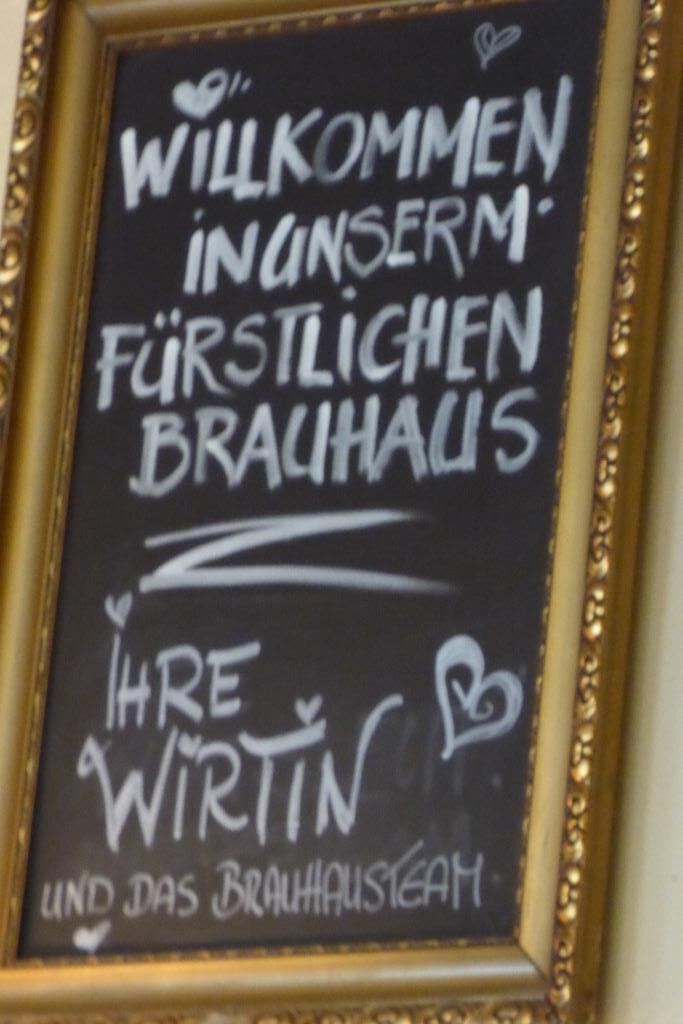 WILLKOMMEN
IN UNSERM
FÜRSTLICHEN
BRAUHAUS
IHRE
WIRTIN
UND DAS BRAUHAUSTEAM